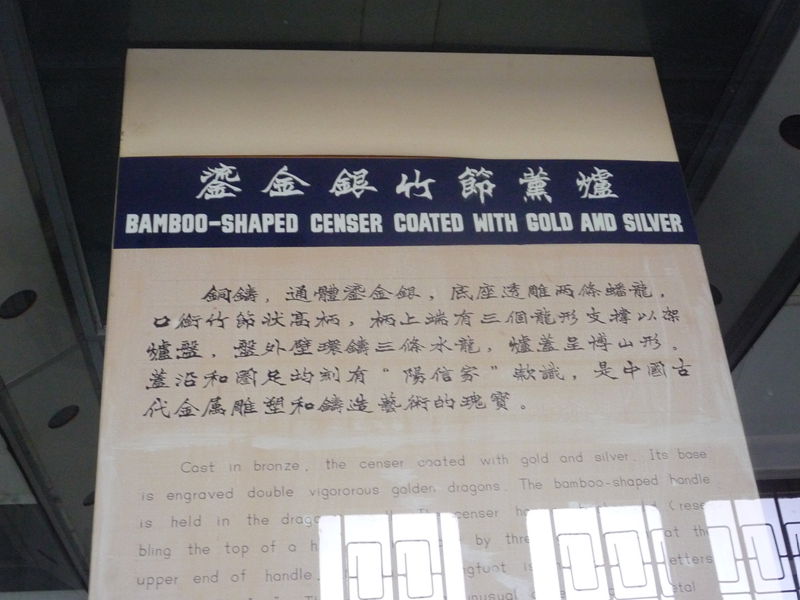 鎏金銀竹節薰爐
BAMBOO-SHAPED CENSER COATED WITH GOLD AND SILVER
銅鑄，通體鎏金銀，底座透雕两條蟠龍，
口銜竹節狀高柄，柄上端有三個龍形支撐以架
爐盤，盤外壁環鑄三條水龍，爐蓋呈博山形。
蓋沿和圈足均刻有“陽信家”款識，是中國古
代金属雕塑和鑄造藝術的瑰寶。
Cast in bronze, the censer coated with gold and silver. Its base
is engraved double vigororous golden dragons. The bamboo-shaped handle
is held in the censer (rese
bling the top of a by the
upper end of handle. is
unusual